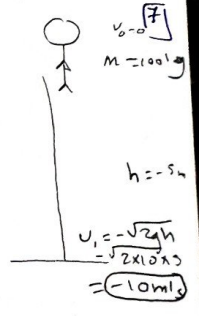 v₀=0 7
M=100kg
h=-5m
v₁=-√2gh
-√2x10x5
=-10m/s